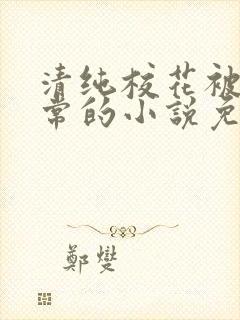 清纯校花被
常的小説免
鄭燮